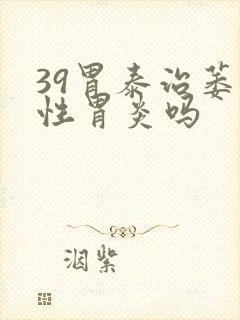 39胃泰治萎
性胃炎吗
洄紫